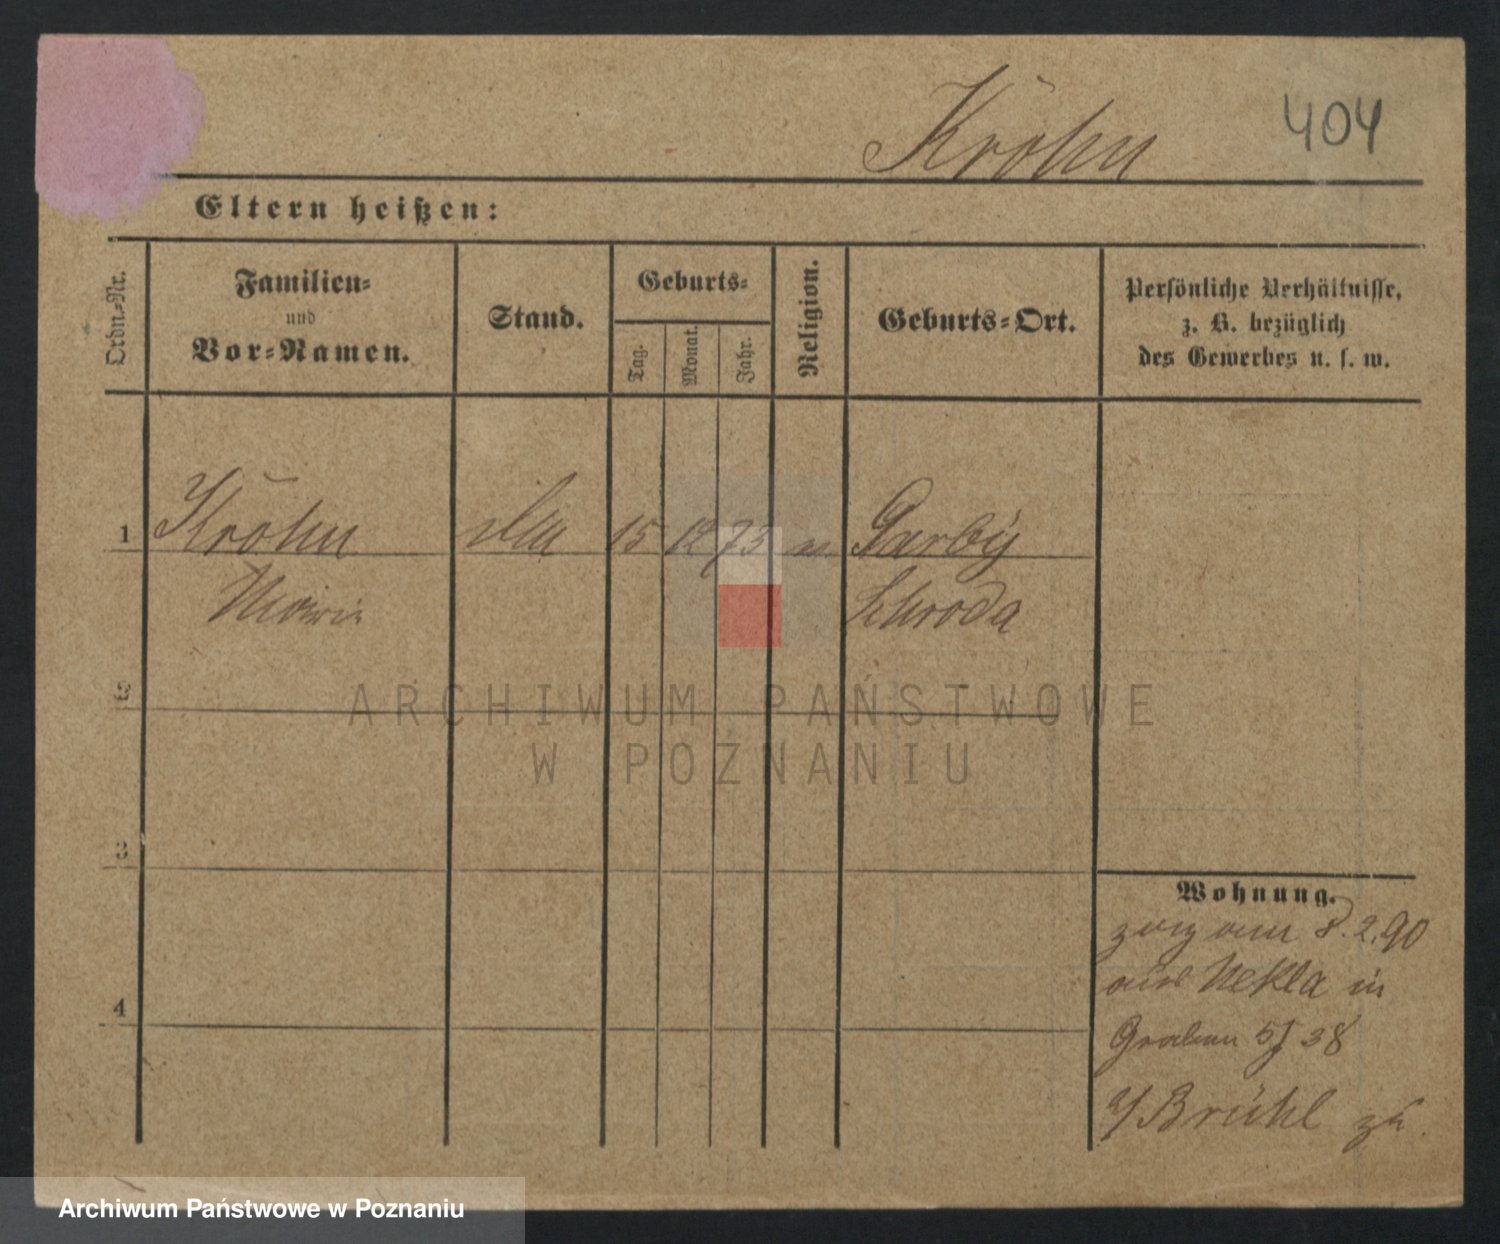 Kröhn 404
Eltern heißen:
Ordn.-Nr.
Familien-
und
Vor-Namen.
Stand.
Geburts-
Tag.
Monat.
Jahr.
Religion.
Geburts-Ort.
Persönliche Verhältnisse,
z. B. bezüglich
des Gewerbes u. s. w.
1 Kröhn 15 12 73 Garby
Marie Schroda
2
ARCHIWUM PAŃSTWOWE
W POZNANIU
3
Wohnung.
zuz vom 8.2.90
aus Nekla in
4
Graben 38
Brühl
Archiwum Państwowe w Poznaniu